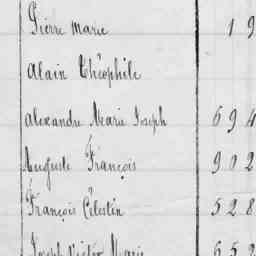 Pierre Marie 19
Alain Théophile
Alexandre Marie Joseph 694
Auguste François 902
François Célestin 528
Joseph Victor Marie 652